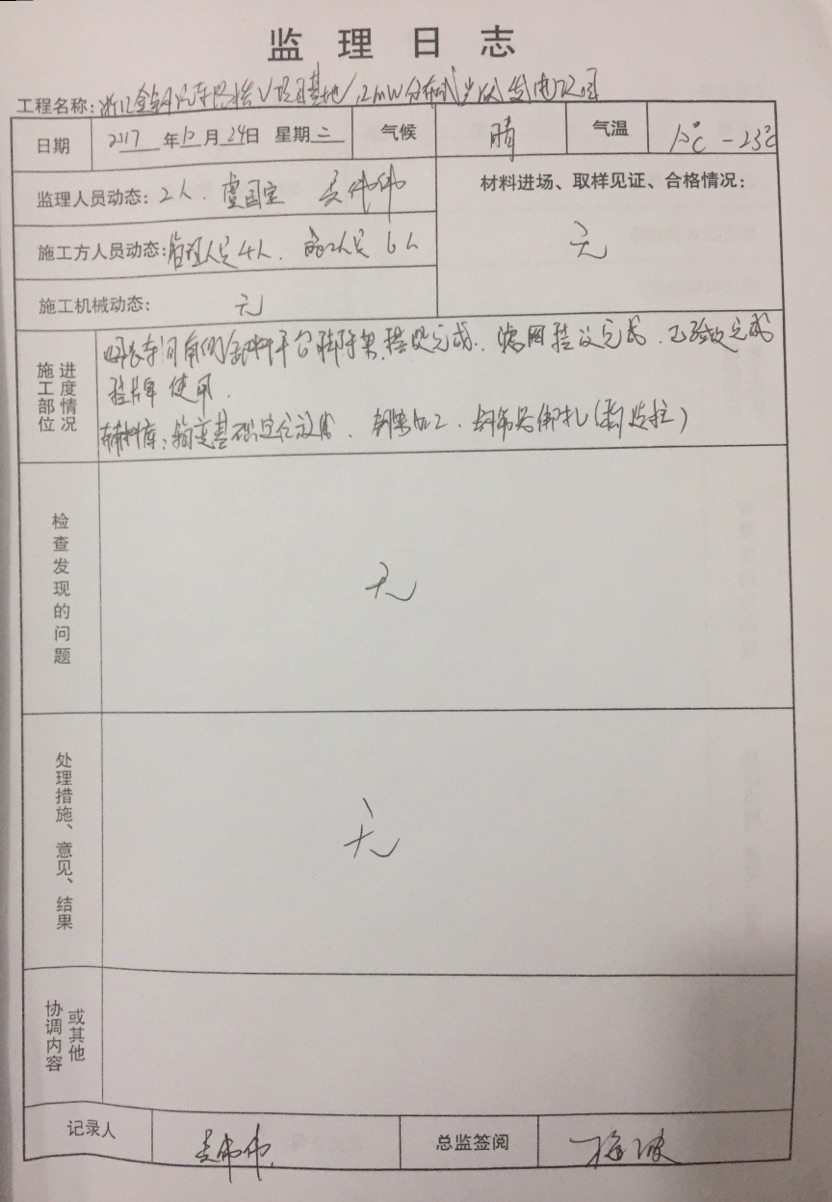 监理日志
工程名称: 浙江金刚汽车 基地 12MW分布式光伏发电项目
日期 2017年10月24日 星期二 气候 晴 气温 12℃-23℃
监理人员动态: 2人. 虞国宝 吴伟伟
材料进场、取样见证、合格情况:
无
施工方人员动态: 管理人员4人. 施工人员6人
施工机械动态: 无
施工部位
进度情况
车间 侧 平台脚手架 搭设完成. 滤网挂设完成. 已验收完成
挂牌使用.
辅料库: 基础定位放 . 钢筋加工. 绑扎
检查发现的问题
无
处理措施、意见、结果
无
协调内容
或其他
记录人 吴伟伟 总监签阅